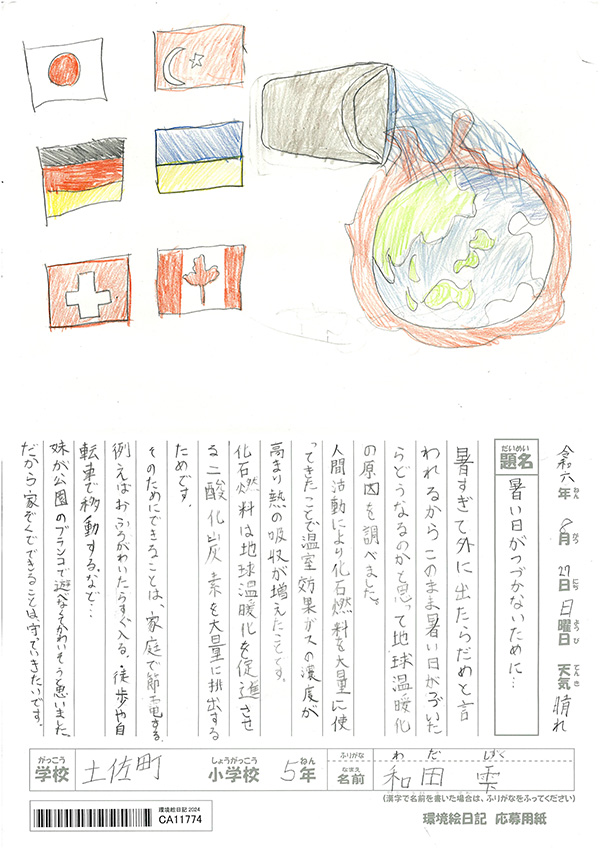 令和六年 8月 27日 日曜日 天気 晴れ
ねん がつ にち ようび てんき
だいめい
題名 暑い日がつづかないために…
暑すぎて外に出たらだめと言
われるからこのまま暑い日がつづいた
らどうなるのかと思って地球温暖化
の原因を調べました。
人間活動により化石燃料を大量に使
ってきたことで温室効果ガスの濃度が
高まり熱の吸収が増えたことです。
化石燃料は地球温暖化を促進させ
る二酸化炭素を大量に排出する
ためです。
そのためにできることは、家庭で節電する。
例えばおふろがわいたらすぐ入る。・徒歩や自
転車で移動する。など…
妹が公園のブランコで遊べなくてかわいそうと思いました。
だから家ぞくでできることは、守っていきたいです。
がっこう しょうがっこう ねん ふりがな わだ しずく
学校 土佐町 小学校 5年 なまえ 名前 和田 雫
(漢字で名前を書いた場合は、ふりがなをふってください)
環境絵日記 2024
CA11774
環境絵日記 応募用紙